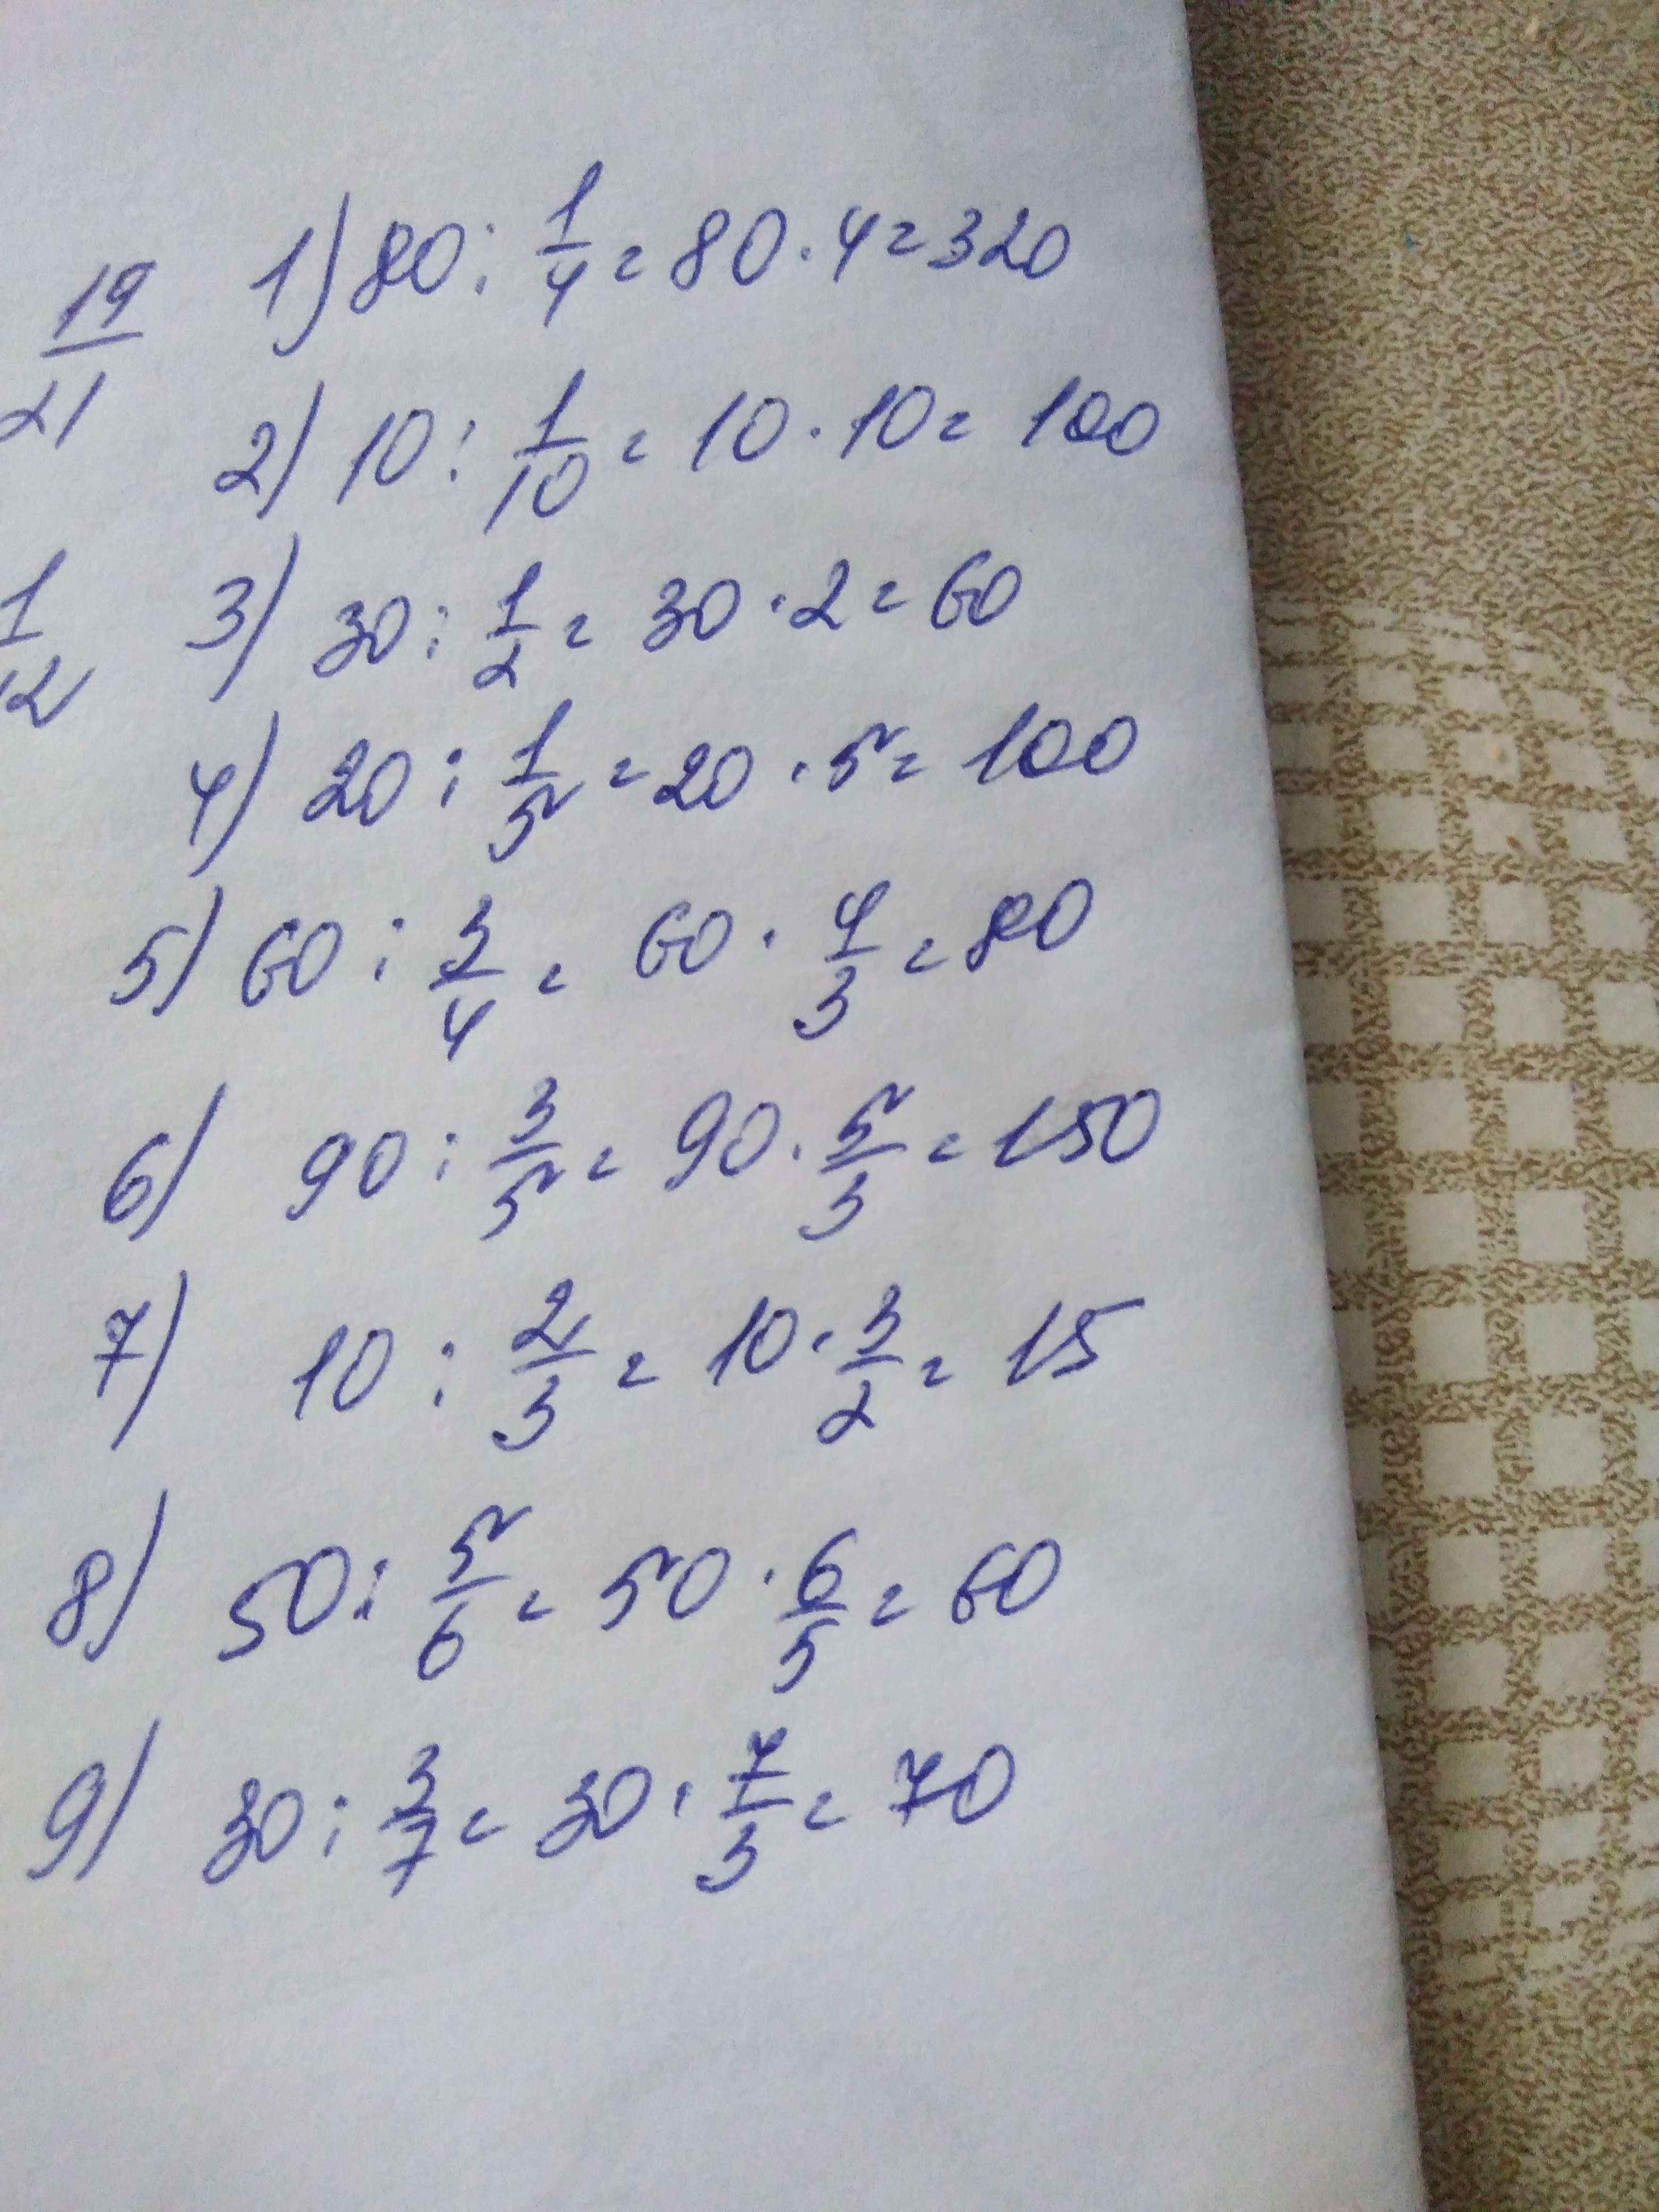 1) 80 : 1/4 = 80 · 4 = 320
19/21
2) 10 : 1/10 = 10 · 10 = 100
3) 30 : 1/2 = 30 · 2 = 60
1/12
4) 20 : 1/5 = 20 · 5 = 100
5) 60 : 3/4 = 60 · 4/3 = 80
6) 90 : 3/5 = 90 · 5/3 = 150
7) 10 : 2/3 = 10 · 3/2 = 15
8) 50 : 5/6 = 50 · 6/5 = 60
9) 30 : 3/7 = 30 · 7/3 = 70